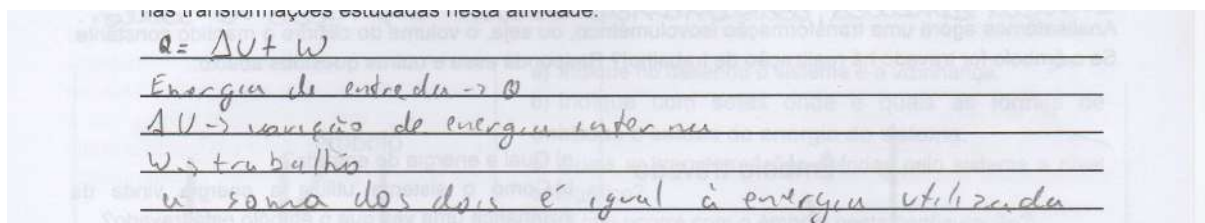 nas transformações estudadas nesta atividade.
Q = ΔU + W
Energia de entrada -> Q
ΔU -> variação de energia interna
W -> trabalho
a soma dos dois é igual à energia utilizada